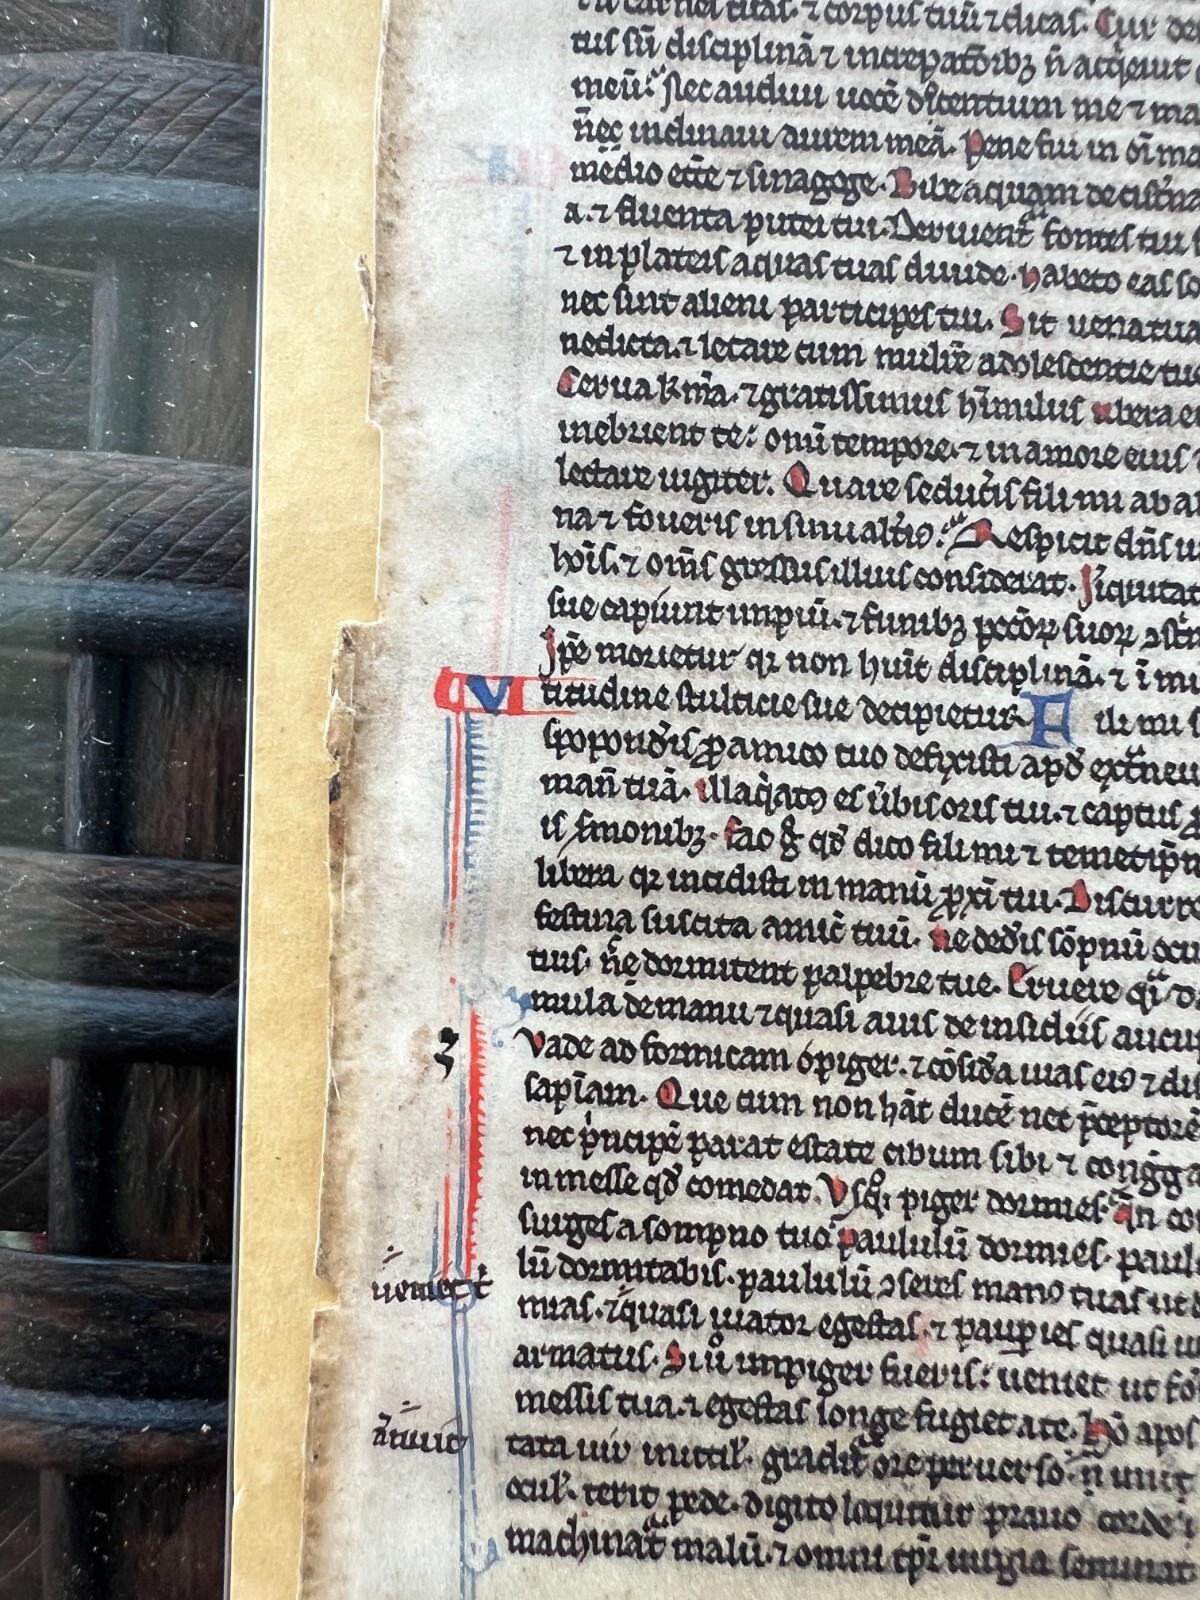 carnes tuas ⁊ corpus tuū ⁊ dicas. Cur de
tus sū disciplinā ⁊ increpatōibꝫ n̄ acq̇euit
meū. Nec audiui uocē docentium me ⁊ ma
n̄ec inclinaui aurem meā. Pene fui in oī ma
medio eccłe ⁊ sinagoge. Bibe aquam de cist̄na
a. ⁊ fluenta putei tui. Deriuent fontes tui
⁊ in plateis aquas tuas diuide. habeto eas so
nec sint alieni participes tui. Sit uena tua
nedicta. ⁊ letare cum mulīe adolescentie tue
Cerua kr̄ma. ⁊ gratissimus hīnulus ubera ei
inebrient te. omī tempore. ⁊ in amore eius
lectare iugiter. Quare seducis̄ fili mi ab a
na ⁊ foueris in sinu alt̄iꝰ. Respicit dn̄s ui
hoīs. ⁊ om̄s gressus illius considerat. Iīquitat
sue capiunt impiū. ⁊ funibꝫ pcc̄oꝝ suoꝝ ꝯstr̄
Ip̄e morietur qꝛ non huīt disciplinā. ⁊ ī mu
V
titudine stulticie sue decipietur. Fili mi
spopond̄is ꝓ amico tuo defixisti apd̄ ext̄neu
man̄ tuā. illaq̇atꝰ es ūbis oris tui. ⁊ captus
is s̄monibꝫ. fac g̊ qd̄ dico fili mi ⁊ temetip̄m
libera qꝛ incidisti in manū ꝓxī tui. Discurre
festina suscita amic̄ tuū. Ne ded̄is sōpnū ocu
tuis. n̄e dormitent palpebre tue. Eruere qͣi d
mula de manu ⁊ quasi auis de insidiis aucu
ꝫ
Vade ad formicam o piger. ⁊ cōsid̄a uias eiꝰ ⁊ di
sapīam. Que cum non hāt ducē nec p̄ceptore
nec pͥncipē parat estate cibum sibi ⁊ congͤga
in messe qd̄ comedat. Vsq̨ piger dormies. qn̄ co
surges a sompno tuo paululū dormies. paul
ueniet t̄
lū dormitabis. paululū ꝯseres manꝰ tuas ut
mias. ⁊ quasi uiator egestas. ⁊ paupies quasi ui
armatus. Si ū impiger fueris. ueniet ut fō
messis tua. ⁊ egestas longe fugiet a te. Hō apos
tata uir inutil̄. gradit̄ ore peruerso. n̄ uuit
ocul̄. terit pede. digito loquitur prauo corde
machinat̄ malū. ⁊ omni tp̄r iurgia seminat